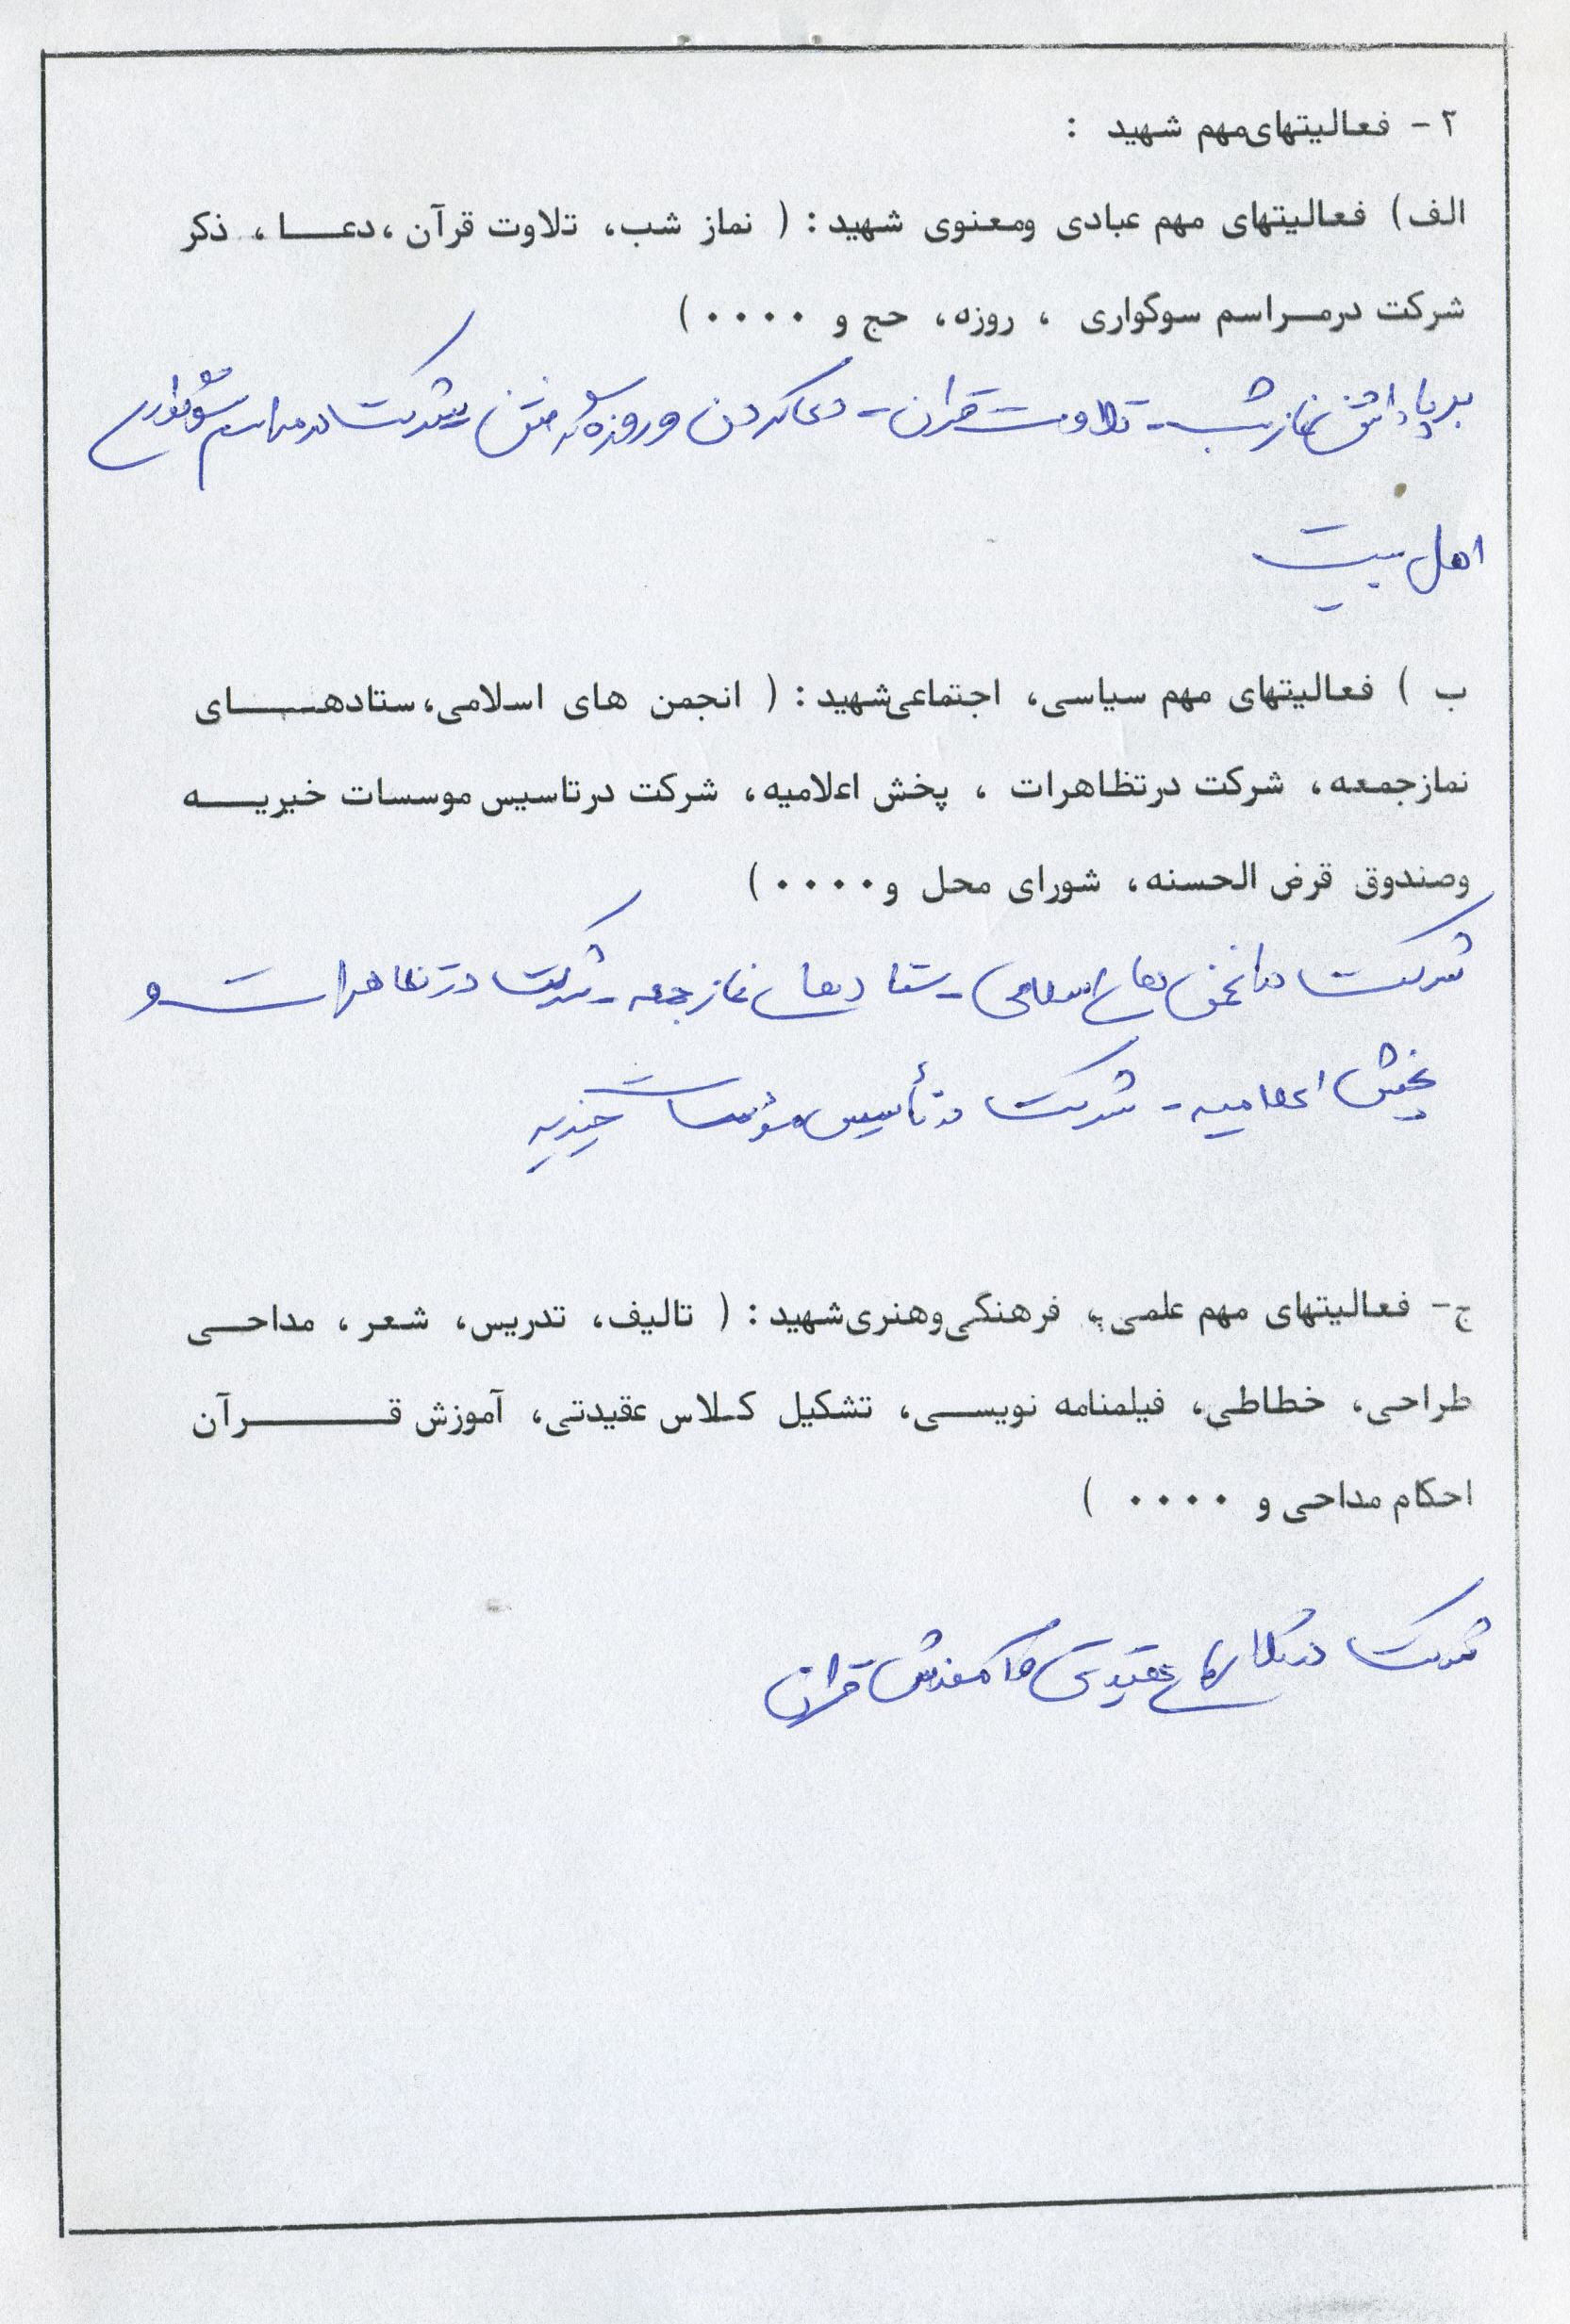 ۲ - فعالیتهای مهم شهید :
الف) فعالیتهای مهم عبادی ومعنوی شهید : ( نماز شب، تلاوت قرآن ،دعا ، ذکر
شرکت درمراسم سوگواری ، روزه، حج و ۰۰۰۰ )
برپاداشتن نماز شب - تلاوت قران - دعا کردن و روزه گرفتن شرکت در مراسم سوگواری
اهل بیت
ب ) فعالیتهای مهم سیاسی، اجتماعی شهید : ( انجمن های اسلامی، ستادهای
نمازجمعه، شرکت درتظاهرات ، پخش اعلامیه، شرکت درتاسیس موسسات خیریه
وصندوق قرض الحسنه، شورای محل و ۰۰۰۰ )
شرکت در انجمن های اسلامی - ستادهای نماز جمعه - شرکت در تظاهرات و
پخش اعلامیه - شرکت در تأسیس مؤسسات خیریه
ج- فعالیتهای مهم علمی ، فرهنگی وهنری شهید : ( تالیف، تدریس، شعر ، مداحی
طراحی، خطاطی، فیلمنامه نویسی، تشکیل کلاس عقیدتی، آموزش قرآن
احکام مداحی و ۰۰۰۰ )
شرکت در کلاس های عقیدتی و آموزش قران